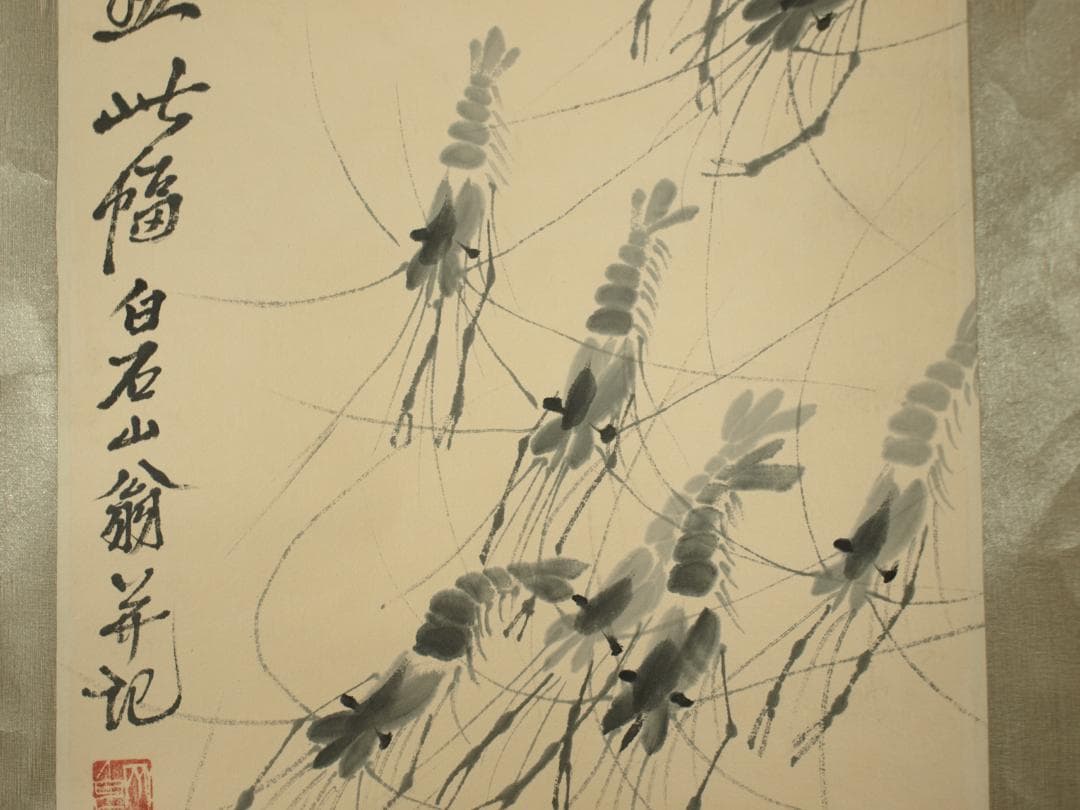 此幅白石山翁并記